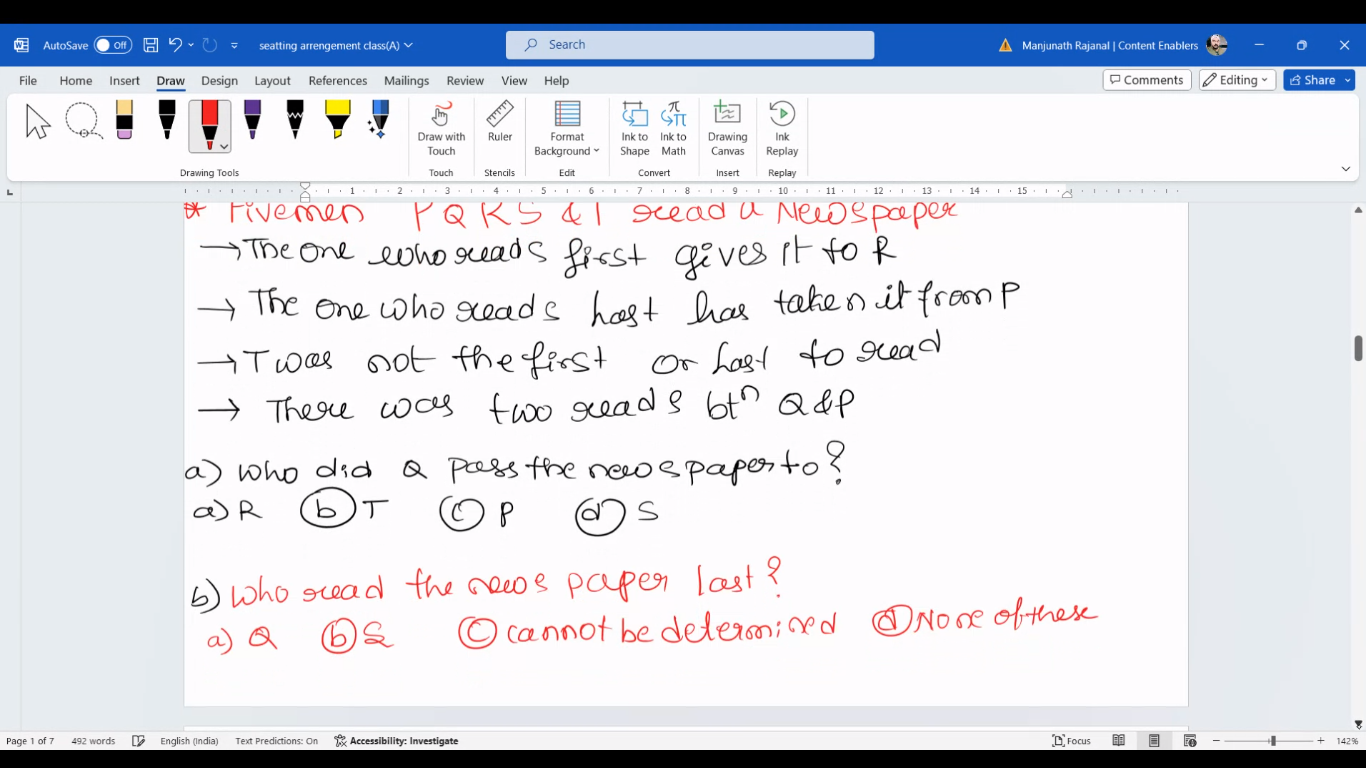 AutoSave Off seatting arrangement class(A) Search Manjunath Rajanal | Content Enablers
File Home Insert Draw Design Layout References Mailings Review View Help Comments Editing Share
Draw with Touch Ruler Format Background Ink to Shape Ink to Math Drawing Canvas Ink Replay
Drawing Tools Touch Stencils Edit Convert Insert Replay
1 2 3 4 5 6 7 8 9 10 11 12 13 14 15
* Fivemen P Q R S & T read a Newspaper
→ The one who reads first gives it to R
→ The one who reads last has taken it from P
→ T was not the first or last to read
→ There was two reads btn Q & P
a) who did Q pass the newspaper to?
a) R b T c P d S
b) who read the news paper last?
a) Q b S c cannot be determined d None of these
Page 1 of 7 492 words English (India) Text Predictions: On Accessibility: Investigate Focus 142%